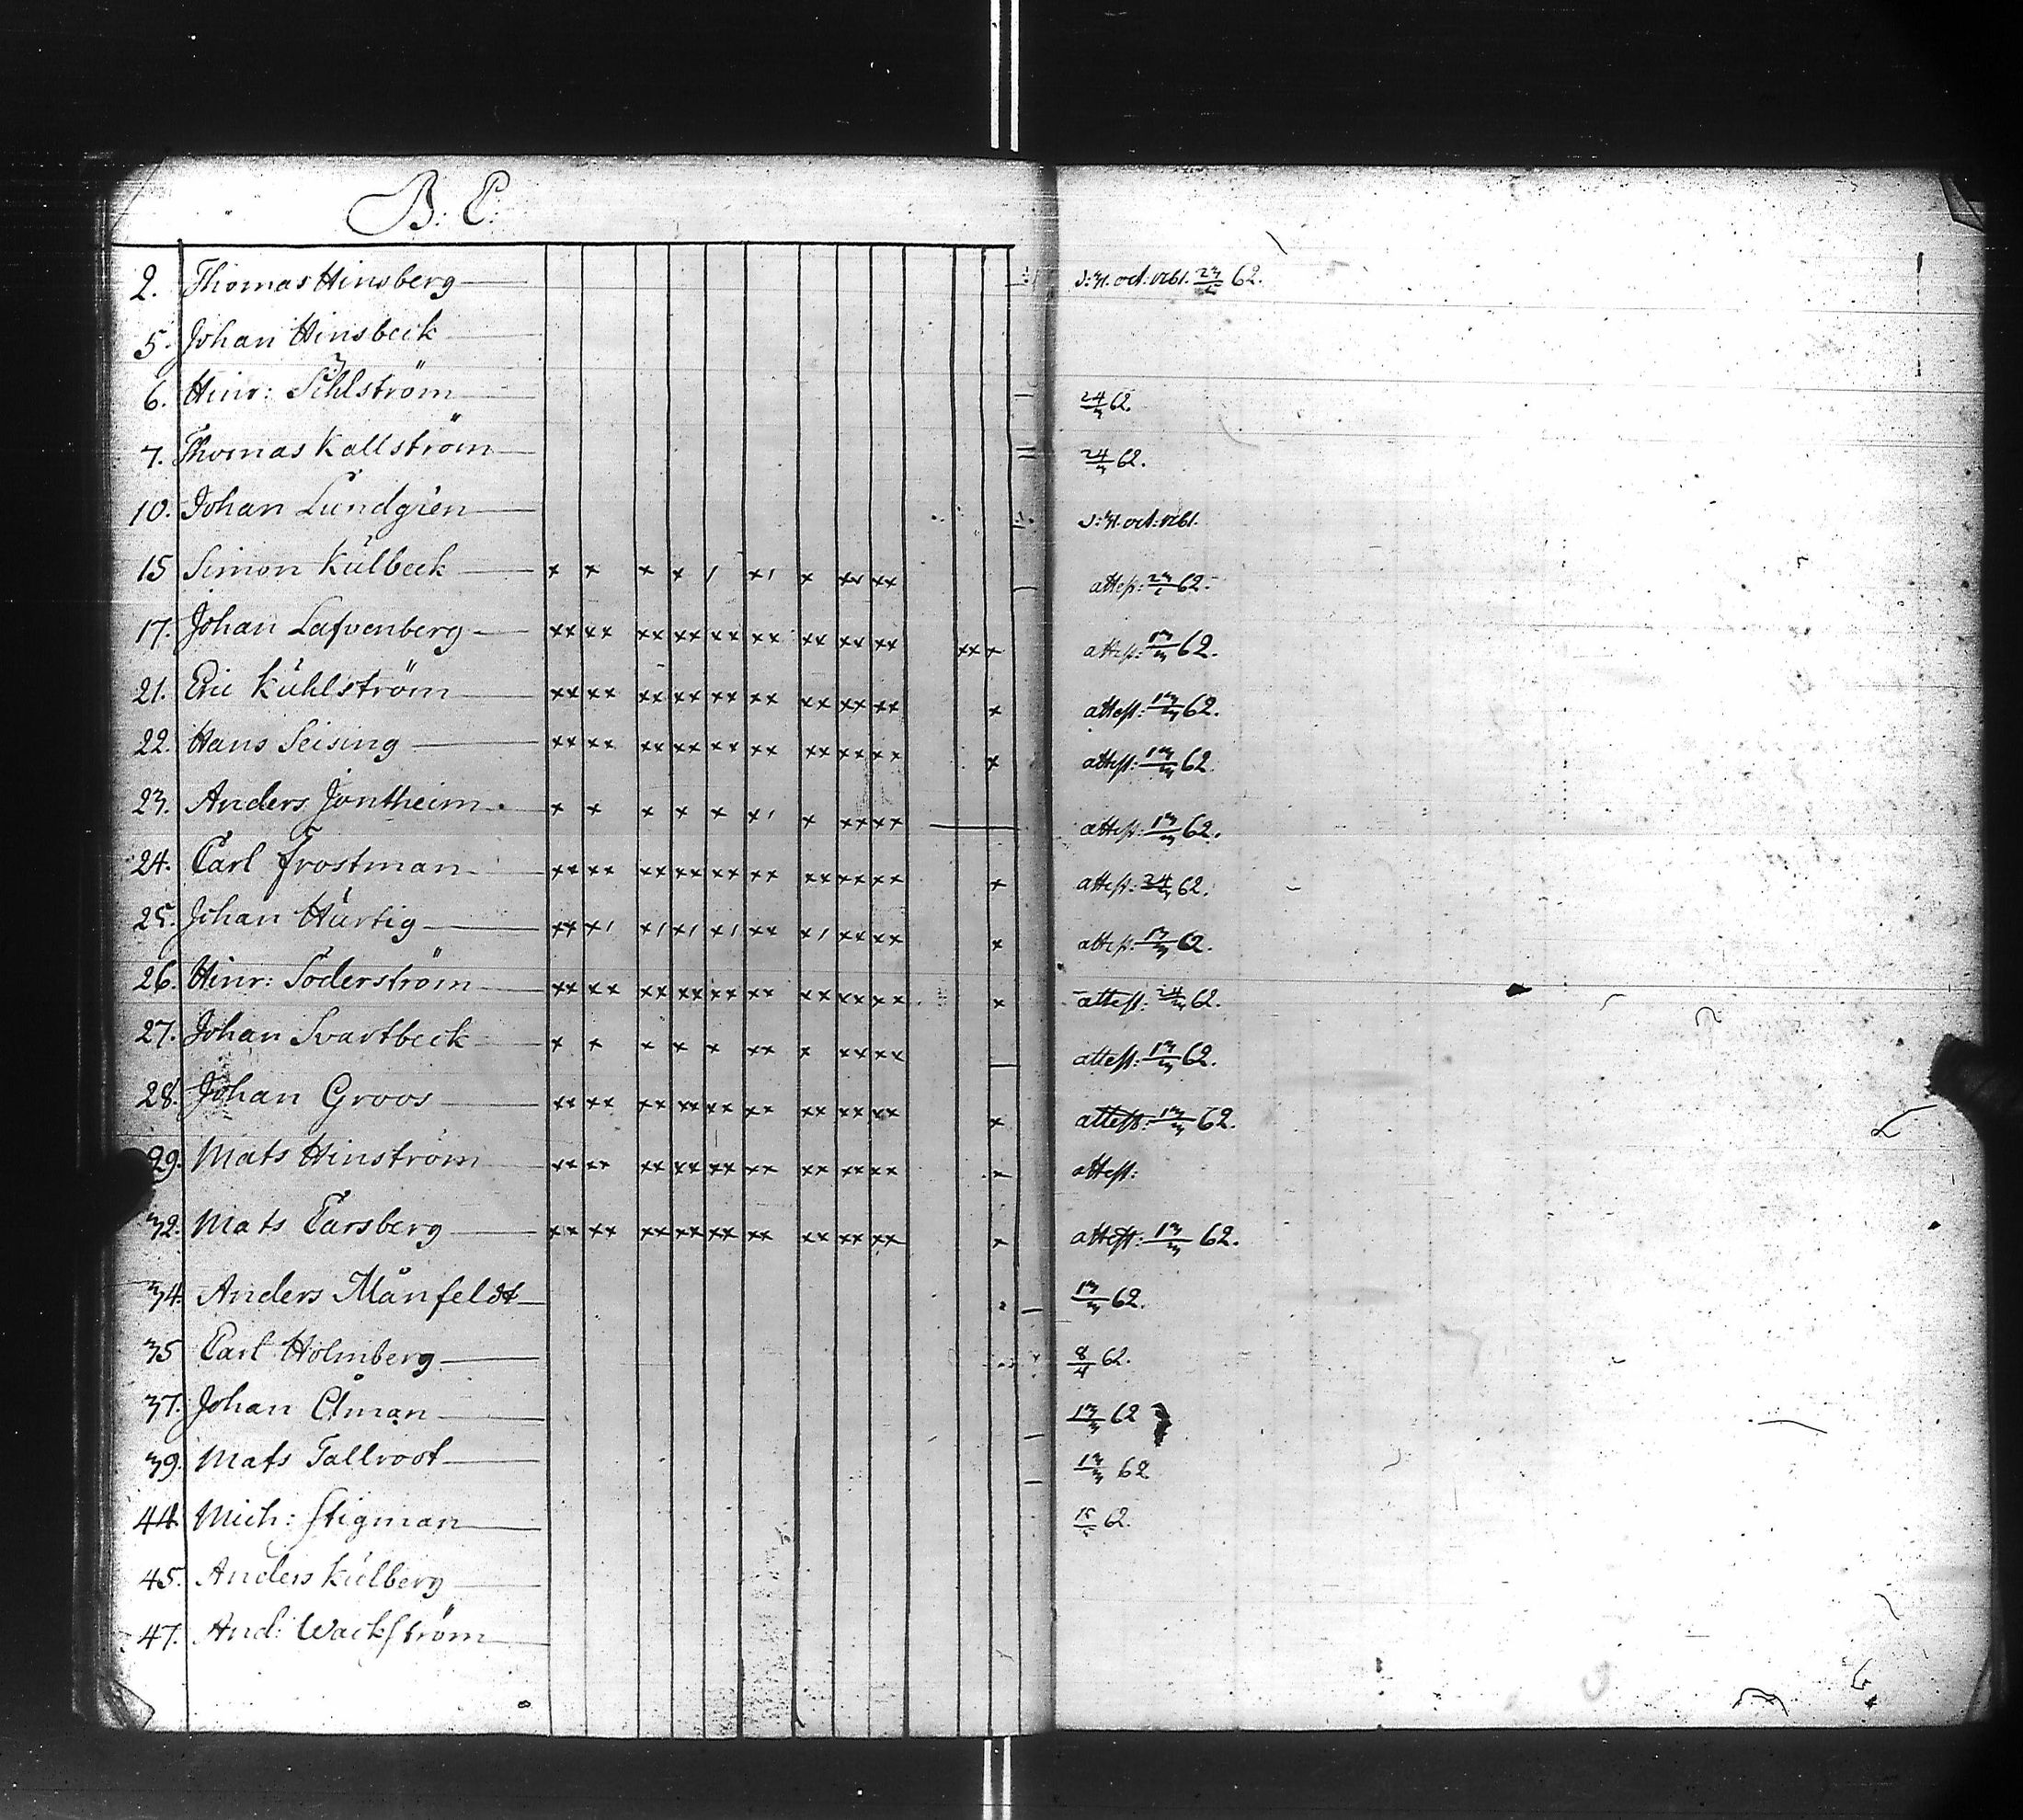 B: C:
2. Thomas Hinsberg d: 31. oct: 1761. 23/5 62.
5. Johan Hinsbeck
6. Hinr: Sihlström 24/3 62.
7. Thomas Kallström 24/3 62.
10. Johan Lundgren d: 31. oct: 1761.
15 Simon Kulbeck x x x x / x/ x xx xx attest: 62.
17. Johan Lafvenberg xx xx xx xx xx xx xx xx xx xx x attest: 13/3 62.
21. Eric Kuhlström xx xx xx xx xx xx xx xx xx x attest: 13/3 62.
22. Hans Seising xx xx xx xx xx xx xx xx xx x attest: 13/3 62.
23. Anders Jontheim x x x x x x/ x xx xx attest: 13/3 62.
24. Carl Frostman xx xx xx xx xx xx xx xx xx x attest: 24/3 62.
25. Johan Hurtig xx x/ x/ x/ x/ xx x/ xx xx x attest: 13/3 62.
26. Hinr: Söderström xx xx xx xx xx xx xx xx xx x attest: 24/3 62.
27. Johan Svartbeck x x x x x xx x xx xx attest: 13/3 62.
28. Johan Groos xx xx xx xx xx xx xx xx xx x attest: 13/3 62.
29. Mats Hinström xx xx xx xx xx xx xx xx xx attest:
32. Mats Carsberg xx xx xx xx xx xx xx xx xx x attest: 13/3 62.
34. Anders Månfeldt 13/3 62.
35 Carl Holmberg 8/4 62.
37. Johan Åman 13/3 62
39. Mats Tallroot 13/3 62
44. Mich: Stigman 15/5 62.
45. Anders Kulberg
47. And: Wackström